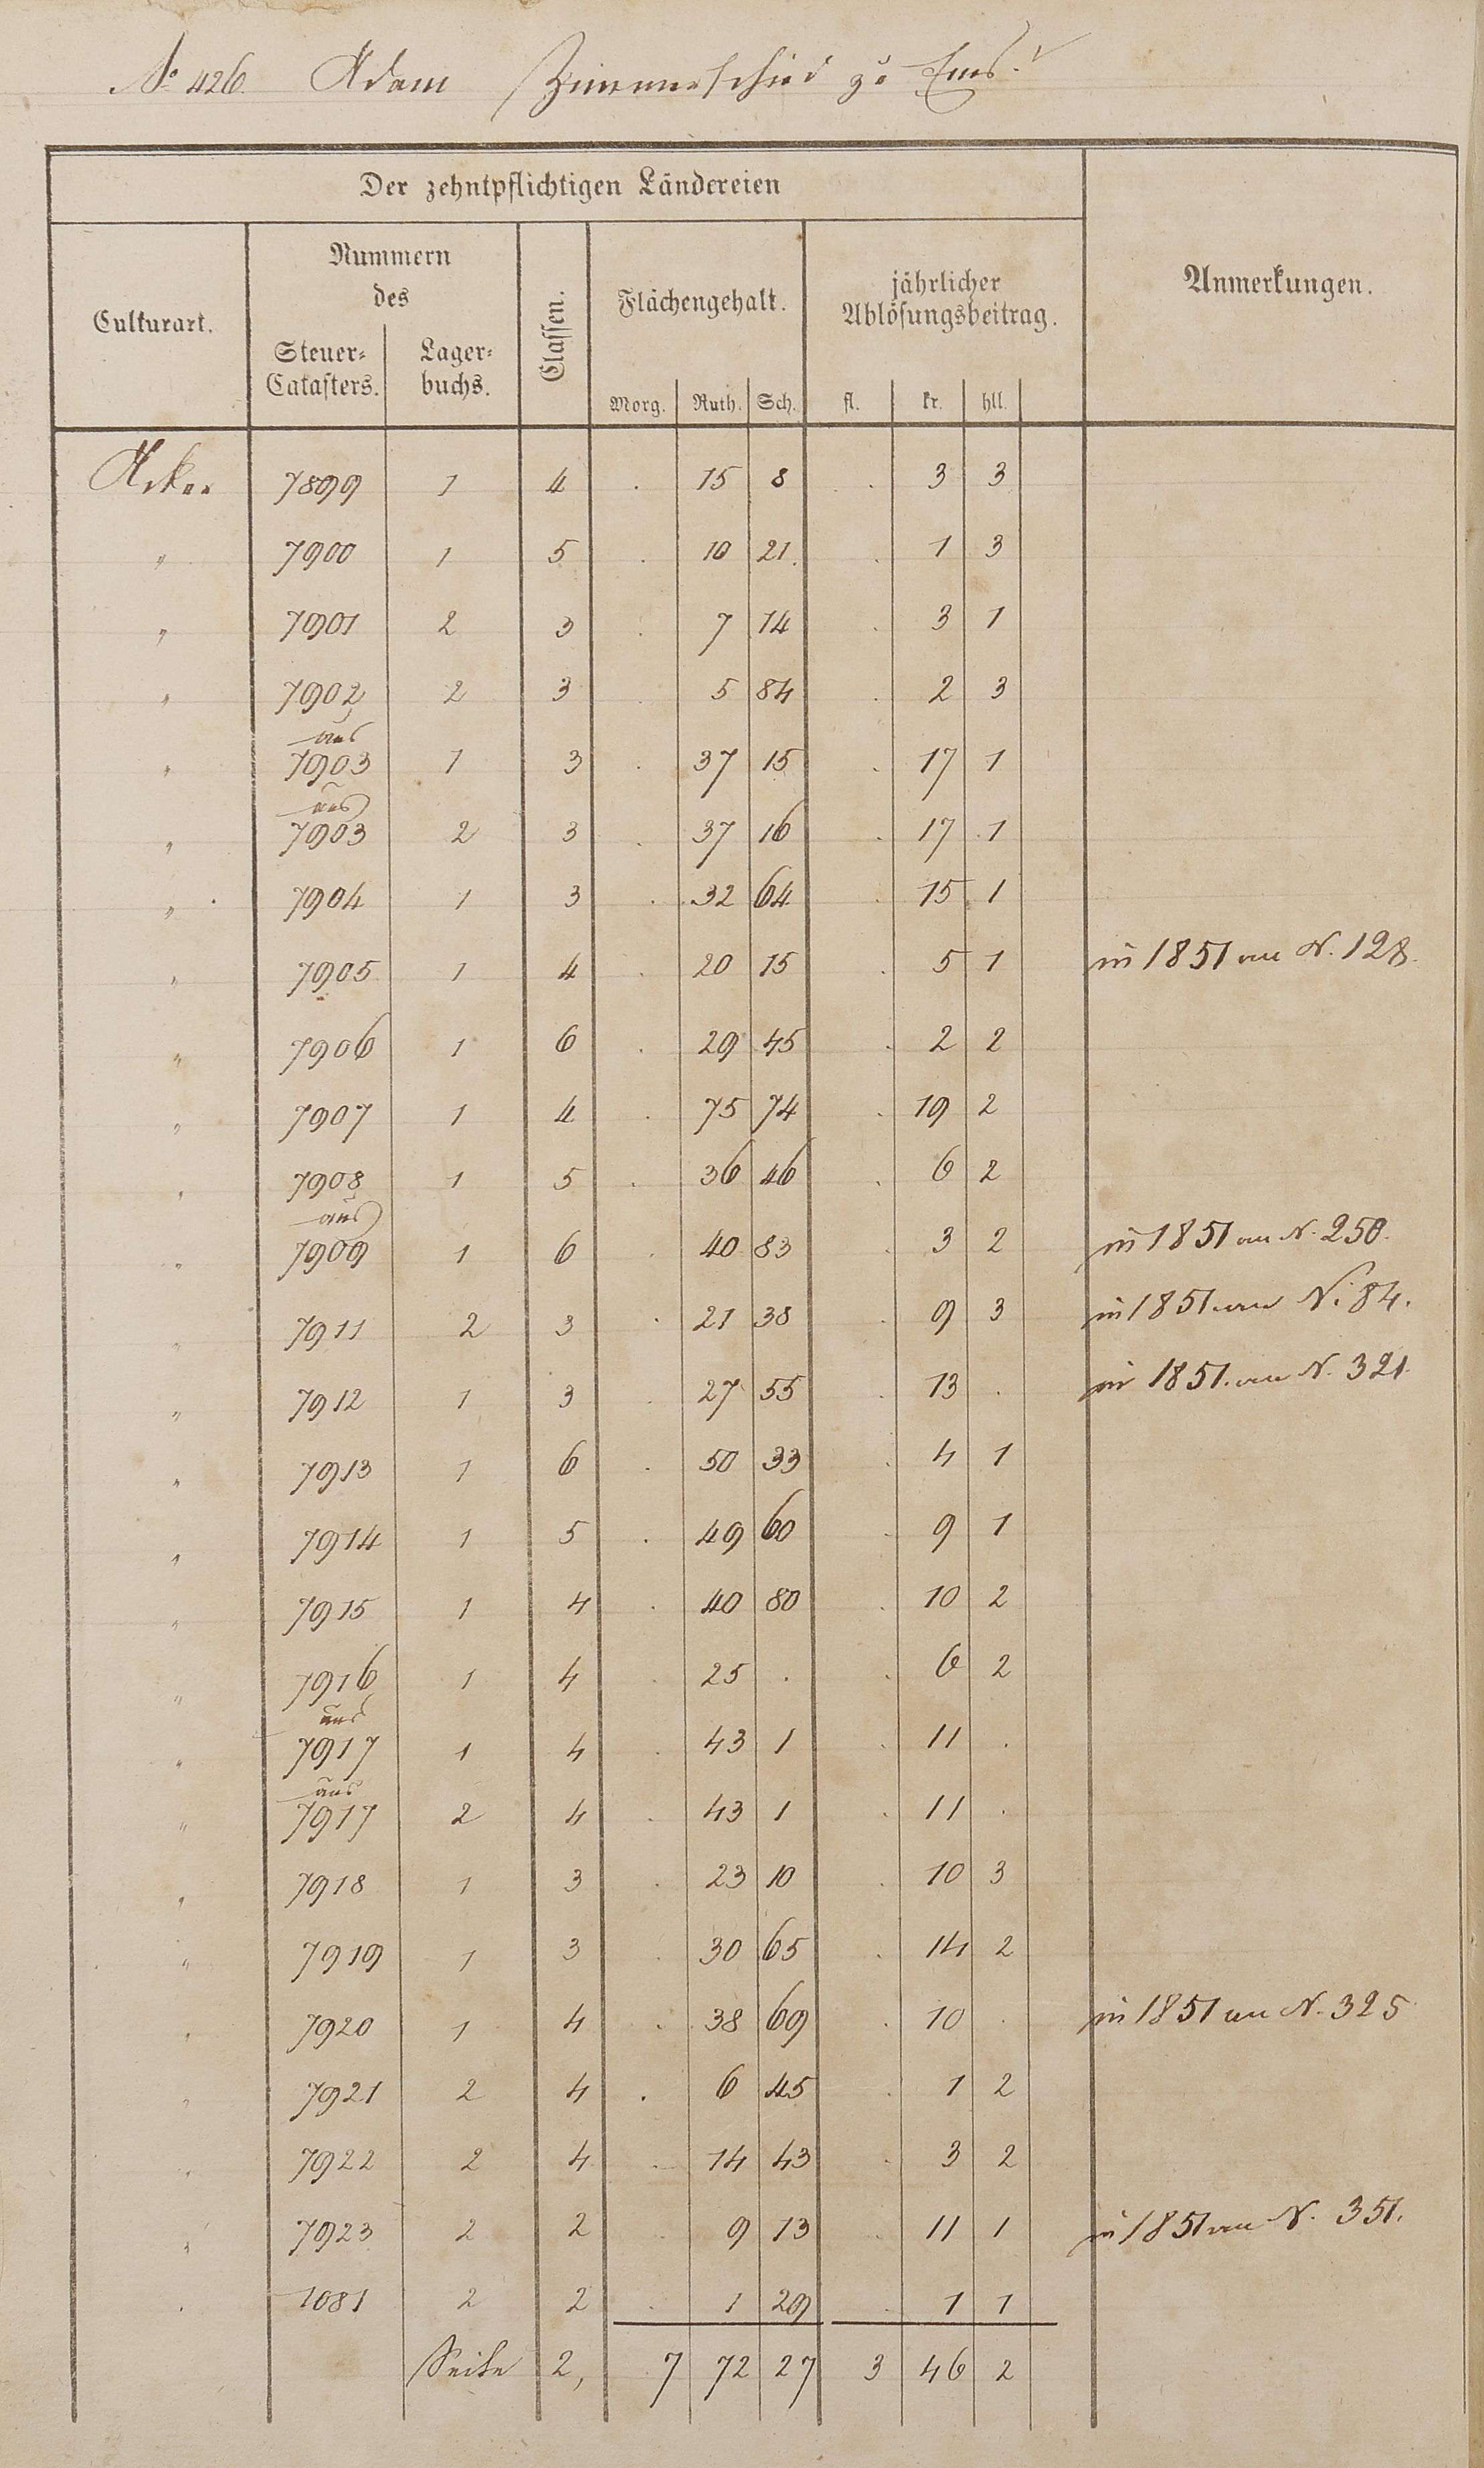 No 426. Adam Zimmerschied zu Ems.
Der zehntpflichtigen Ländereien
Culturart.
Nummern
des
Steuer-
Catasters.
Lager-
buchs.
Classen.
Flächengehalt.
Morg. Ruth. Sch.
jährlicher
Ablösungsbeitrag.
fl. kr. hll.
Anmerkungen.
Acker 7899 1 4 . 15 8 . 3 3
" 7900 1 5 . 10 21 . 1 3
" 7901 2 3 . 7 14 . 3 1
" 7902 2 3 . 5 84 . 2 3
aus
" 7903 1 3 . 37 15 . 17 1
aus
" 7903 2 3 . 37 16 . 17 1
" 7904 1 3 . 32 64 . 15 1
" 7905 1 4 . 20 15 . 5 1 in 1851 an N. 128.
" 7906 1 6 . 29 45 . 2 2
" 7907 1 4 . 75 74 . 19 2
" 7908 1 5 . 36 46 . 6 2
aus
" 7909 1 6 . 40 83 . 3 2 in 1851 an N. 250.
" 7911 2 3 . 21 38 . 9 3 in 1851 an N. 84.
" 7912 1 3 . 27 55 . 13 . in 1851 an N. 321.
" 7913 1 6 . 50 33 . 4 1
" 7914 1 5 . 49 60 . 9 1
" 7915 1 4 . 40 80 . 10 2
" 7916 1 4 . 25 . . 6 2
aus
" 7917 1 4 . 43 1 . 11 .
aus
" 7917 2 4 . 43 1 . 11 .
" 7918 1 3 . 23 10 . 10 3
" 7919 1 3 . 30 65 . 14 2
" 7920 1 4 . 38 69 . 10 . in 1851 an N. 325
" 7921 2 4 . 6 45 . 1 2
" 7922 2 4 . 14 43 . 3 2
" 7923 2 2 . 9 13 . 11 1 in 1851 an N. 351.
" 1081 2 2 . 1 29 . 1 1
Seite 2, 7 72 27 3 46 2